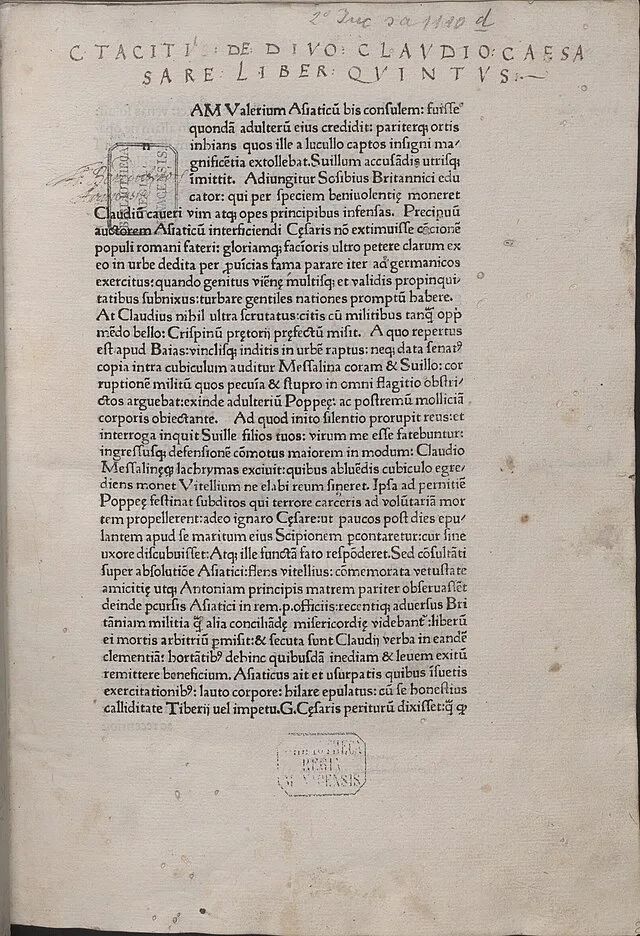 2° Inc s a 1180 d
C TACITI DE DIVO CLAVDIO CAESA
SARE LIBER QVINTVS
n
AM Valerium Asiaticū bis consulem: fuisse
quondā adulterū eius credidit: pariterq; ortis
inhians quos ille a lucullo captos insigni ma/
gnificētia extollebat. Suillum accusādis utrisq;
īmittit. Adiungitur Sosibius Britannici edu
cator: qui per speciem beniuolentię moneret
Claudiū caueri vim atq; opes principibus infensas. Precipuū
auctorem Asiaticū interficiendi Cęsaris nō extimuisse cōcionē
populi romani fateri: gloriamq; facioris ultro petere clarum ex
eo in urbe dedita per ꝓuīcias fama parare iter ad germanicos
exercitus: quando genitus viēnę multisq; et validis propinqui/
tatibus subnixus: turbare gentiles nationes promptū habere.
At Claudius nihil ultra scrutatus: citis cū militibus tanq̄ opp
mēdo bello: Crispinū prętorij pręfectū misit. A quo repertus
est apud Baias: vinclisq; inditis in urbē raptus: neq; data senatꝰ
copia intra cubiculum auditur Messalina coram & Suillo: cor
ruptionē militū quos pecuīa & stupro in omni flagitio obstri/
ctos arguebat: exinde adulteriū Poppeę: ac postremū molliciā
corporis obiectante. Ad quod inito silentio prorupit reus: et
interroga inquit Suille filios tuos: virum me esse fatebuntur:
ingressusq; defensionē cōmotus maiorem in modum: Claudio
Messalinęq; lachrymas exciuit: quibus abluēdis cubiculo egre/
diens monet Vitellium ne elabi reum sineret. Ipsa ad pernitiē
Poppeę festinat subditos qui terrore carceris ad volūtariā mor
tem propellerent: adeo ignaro Cęsare: ut paucos post dies epu/
lantem apud se maritum eius Scipionem ꝑcontaretur: cur sine
uxore discubuisset: Atq; ille functā fato respōderet. Sed cōsultāti
super absolutiōe Asiatici: flens vitellius: cōmemorata vetustate
amicitię utq; Antoniam principis matrem pariter obseruassēt
deinde ꝑcursis Asiatici in rem.p. officiis: recentiq; aduersus Bri
tāniam militia q̄ alia conciliādę misericordię videbant᷑: liberū
ei mortis arbitriū ꝑmisit: & secuta sunt Claudij verba in eandē
clementiā: hortātibꝰ dehinc quibusdā inediam & leuem exitū
remittere beneficium. Asiaticus ait et usurpatis quibus īsuetis
exercitationibꝰ: lauto corpore: hilare epulatus: cū se honestius
calliditate Tiberij uel impetu. G. Cęsaris periturū dixisset: q̄ ꝙ
BIBLIOTHECA
REGIA
MONACENSIS